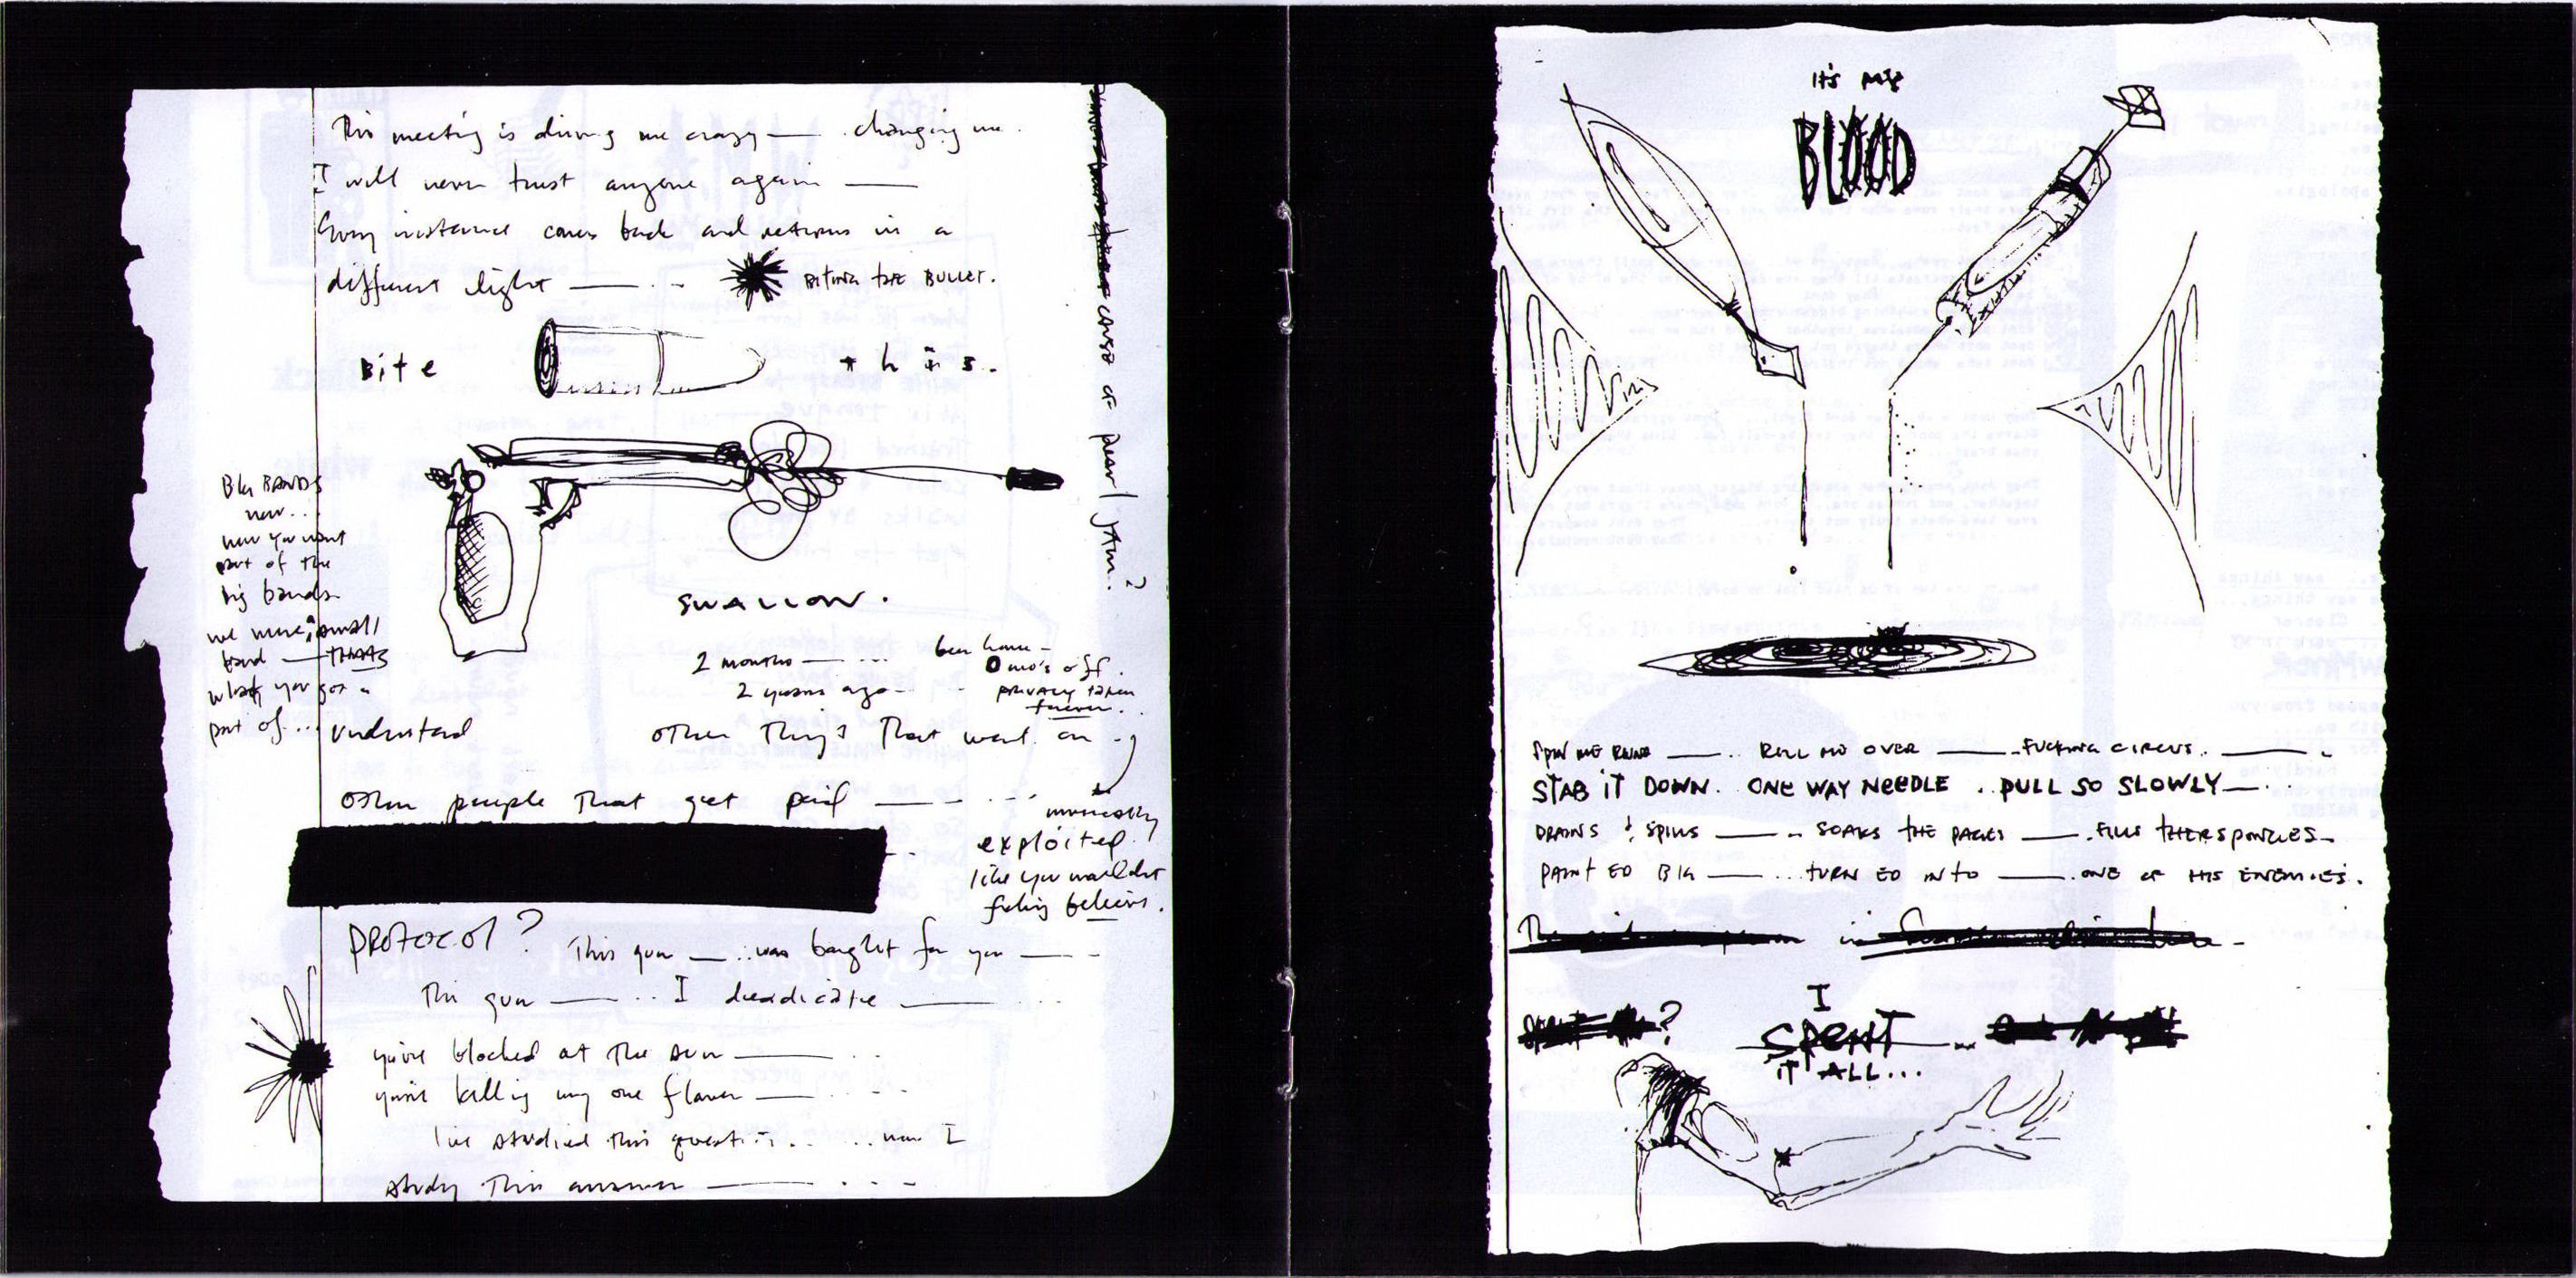 This meeting is driving me crazy — . changing me.
I will never trust anyone again —
Every instance comes back and returns in a
different light — . . .
BITING THE BULLET.
Bite this.
curse of pearl jam?
BIG BANDS
now...
now you want
part of the
big bands
we were a small
band — THAAS
what you got a
part of... understand
SWALLOW.
2 months — ...
2 years ago
been home —
0 mo's off.
PRIVACY taken
forever.
other things that went on
other people that get paid — . . .
musically
exploited
like you wouldnt
believe.
PROTOCOL? This gun — ..was bought for you —
This gun — .. I
you're blocked at the — . .
you're killing my one — . . .
I've studied this question. . . . now I
study this answer — . . .
It's my
BLOOD
SPIN ME ROUND — .. ROLL ME OVER — .. FUCKING CIRCUS. — .
STAB IT DOWN. ONE WAY NEEDLE .. PULL SO SLOWLY — .
DRAINS & SPILLS — .. SOAKS THE PAGES — . FILLS THERE SPONGES —
PAINT ED BIG — ... TURN ED INTO — . ONE OF HIS ENEMIES.
The in
?
I
SPENT
IT ALL...